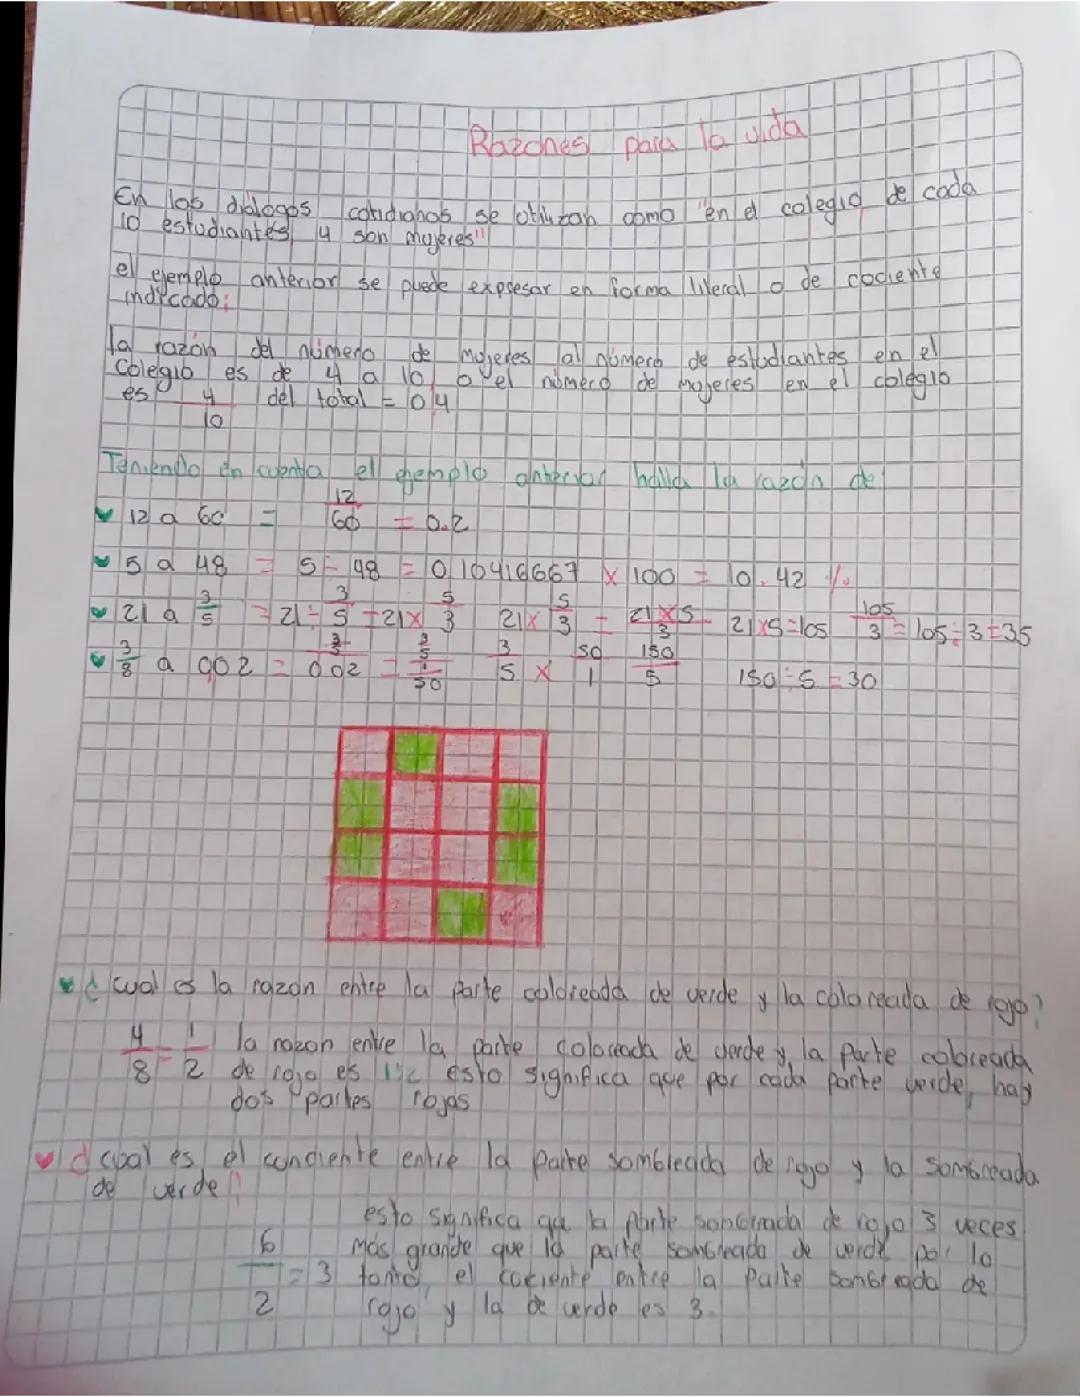 Razones para la vida
En los diálogos cotidianos se utilizan como "en el colegio de cada
10 estudiantes 4 son mujeres"
el ejemplo anterior se puede expresar en forma literal o de cociente
indicado:
la razón del número de mujeres al número de estudiantes en el
colegio es de 4 a 10 o el número de mujeres en el colegio
es 4/10 del total = 0,4
Teniendo en cuenta el ejemplo anterior halla la razón de
12 a 60 = 12/60 = 0.2
5 a 48 = 5 ÷ 48 = 0,10416667 x 100 = 10.42 %
21 a 3/5 = 21 ÷ 3/5 = 21 x 5/3 21 x 5/3 = 21x5/3 21x5=105 105/3 = 105÷3=35
3/8 a 0,02 = 0.02 = 3/5 / 1/50 3/5 x 50/1 150/5 150÷5=30
¿cual es la razon entre la parte coloreada de verde y la coloreada de rojo?
4/8 = 1/2 la razon entre la parte coloreada de verde y la parte coloreada
de rojo es 1/2 esto significa que por cada parte verde, hay
dos partes rojas
¿cual es el condiente entre la parte sombreada de rojo y la sombreada
de verde?
esto significa que la parte sombreada de rojo 3 veces
más grande que la parte sombreada de verde por lo
6/2 = 3 tanto, el cociente entre la parte sombreada de
rojo y la de verde es 3.